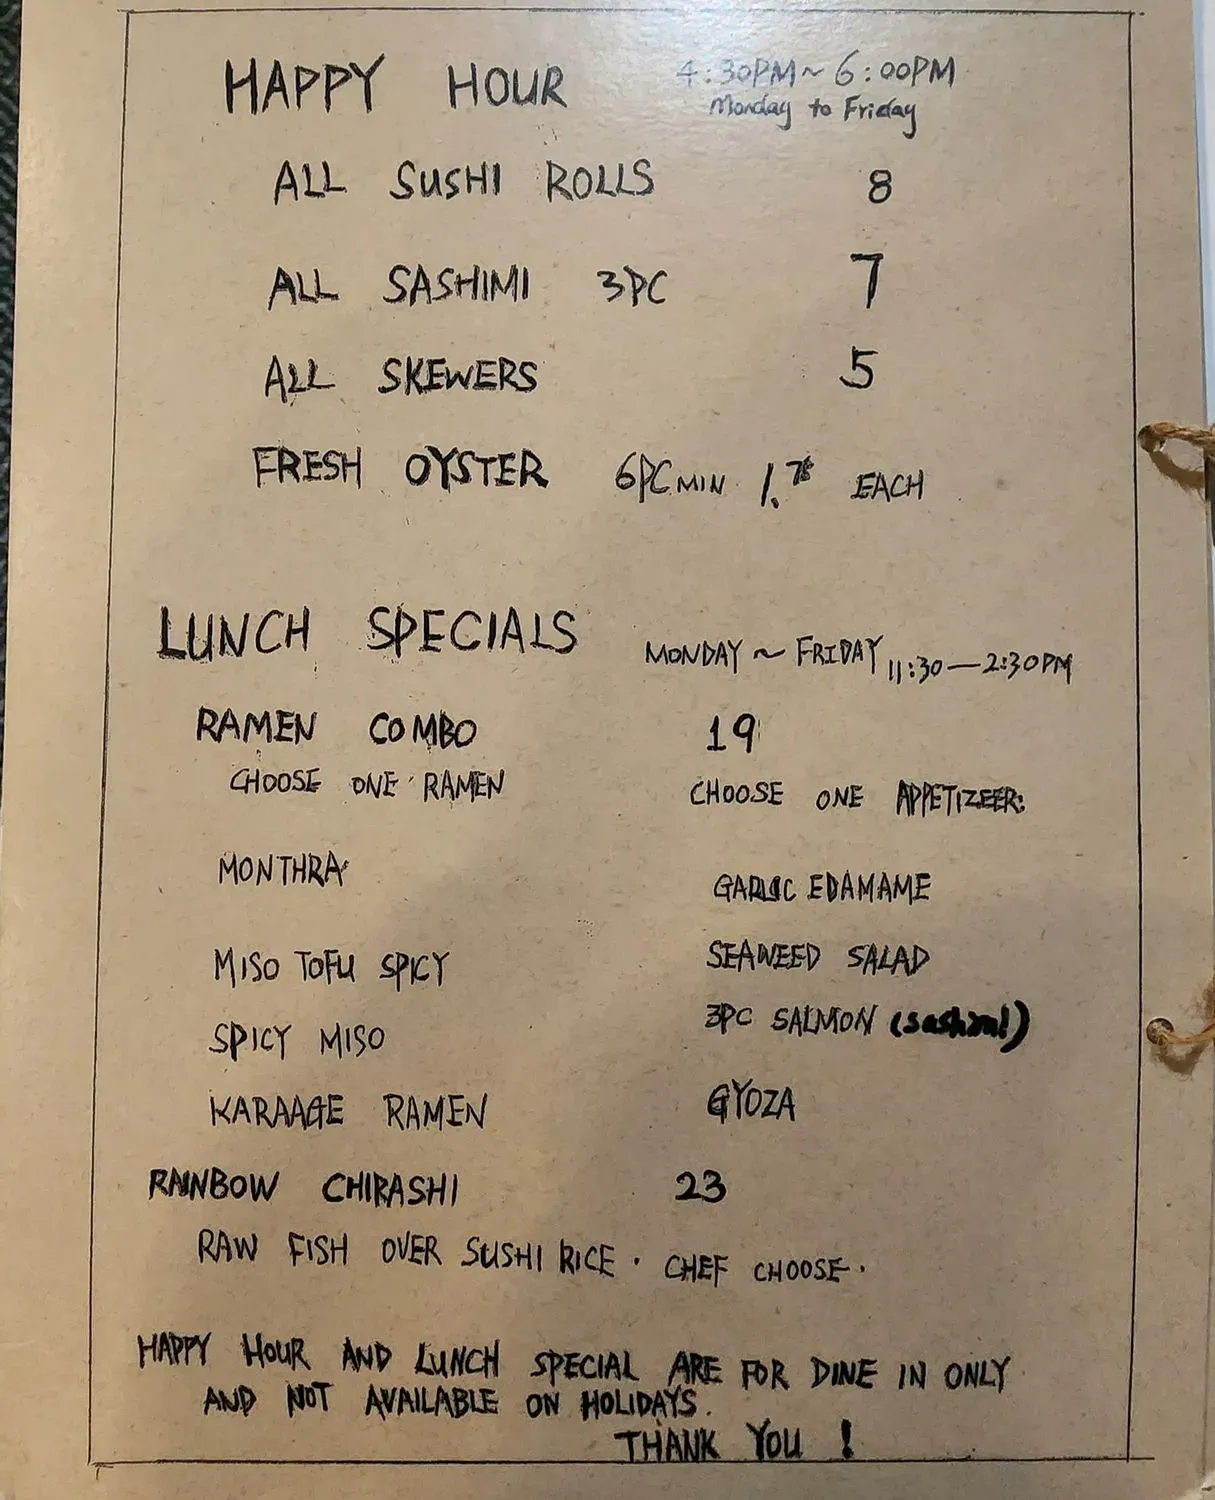 HAPPY HOUR 4:30PM~6:00PM
Monday to Friday
ALL SUSHI ROLLS 8
ALL SASHIMI 3PC 7
ALL SKEWERS 5
FRESH OYSTER 6PC MIN 1.75 EACH
LUNCH SPECIALS MONDAY ~ FRIDAY 11:30—2:30PM
RAMEN COMBO 19
CHOOSE ONE RAMEN CHOOSE ONE APPETIZEER:
MONTHRA GARLIC EDAMAME
MISO TOFU SPICY SEAWEED SALAD
SPICY MISO 3PC SALMON (sashimi)
KARAAGE RAMEN GYOZA
RAINBOW CHIRASHI 23
RAW FISH OVER SUSHI RICE. CHEF CHOOSE.
HAPPY HOUR AND LUNCH SPECIAL ARE FOR DINE IN ONLY
AND NOT AVAILABLE ON HOLIDAYS.
THANK YOU !